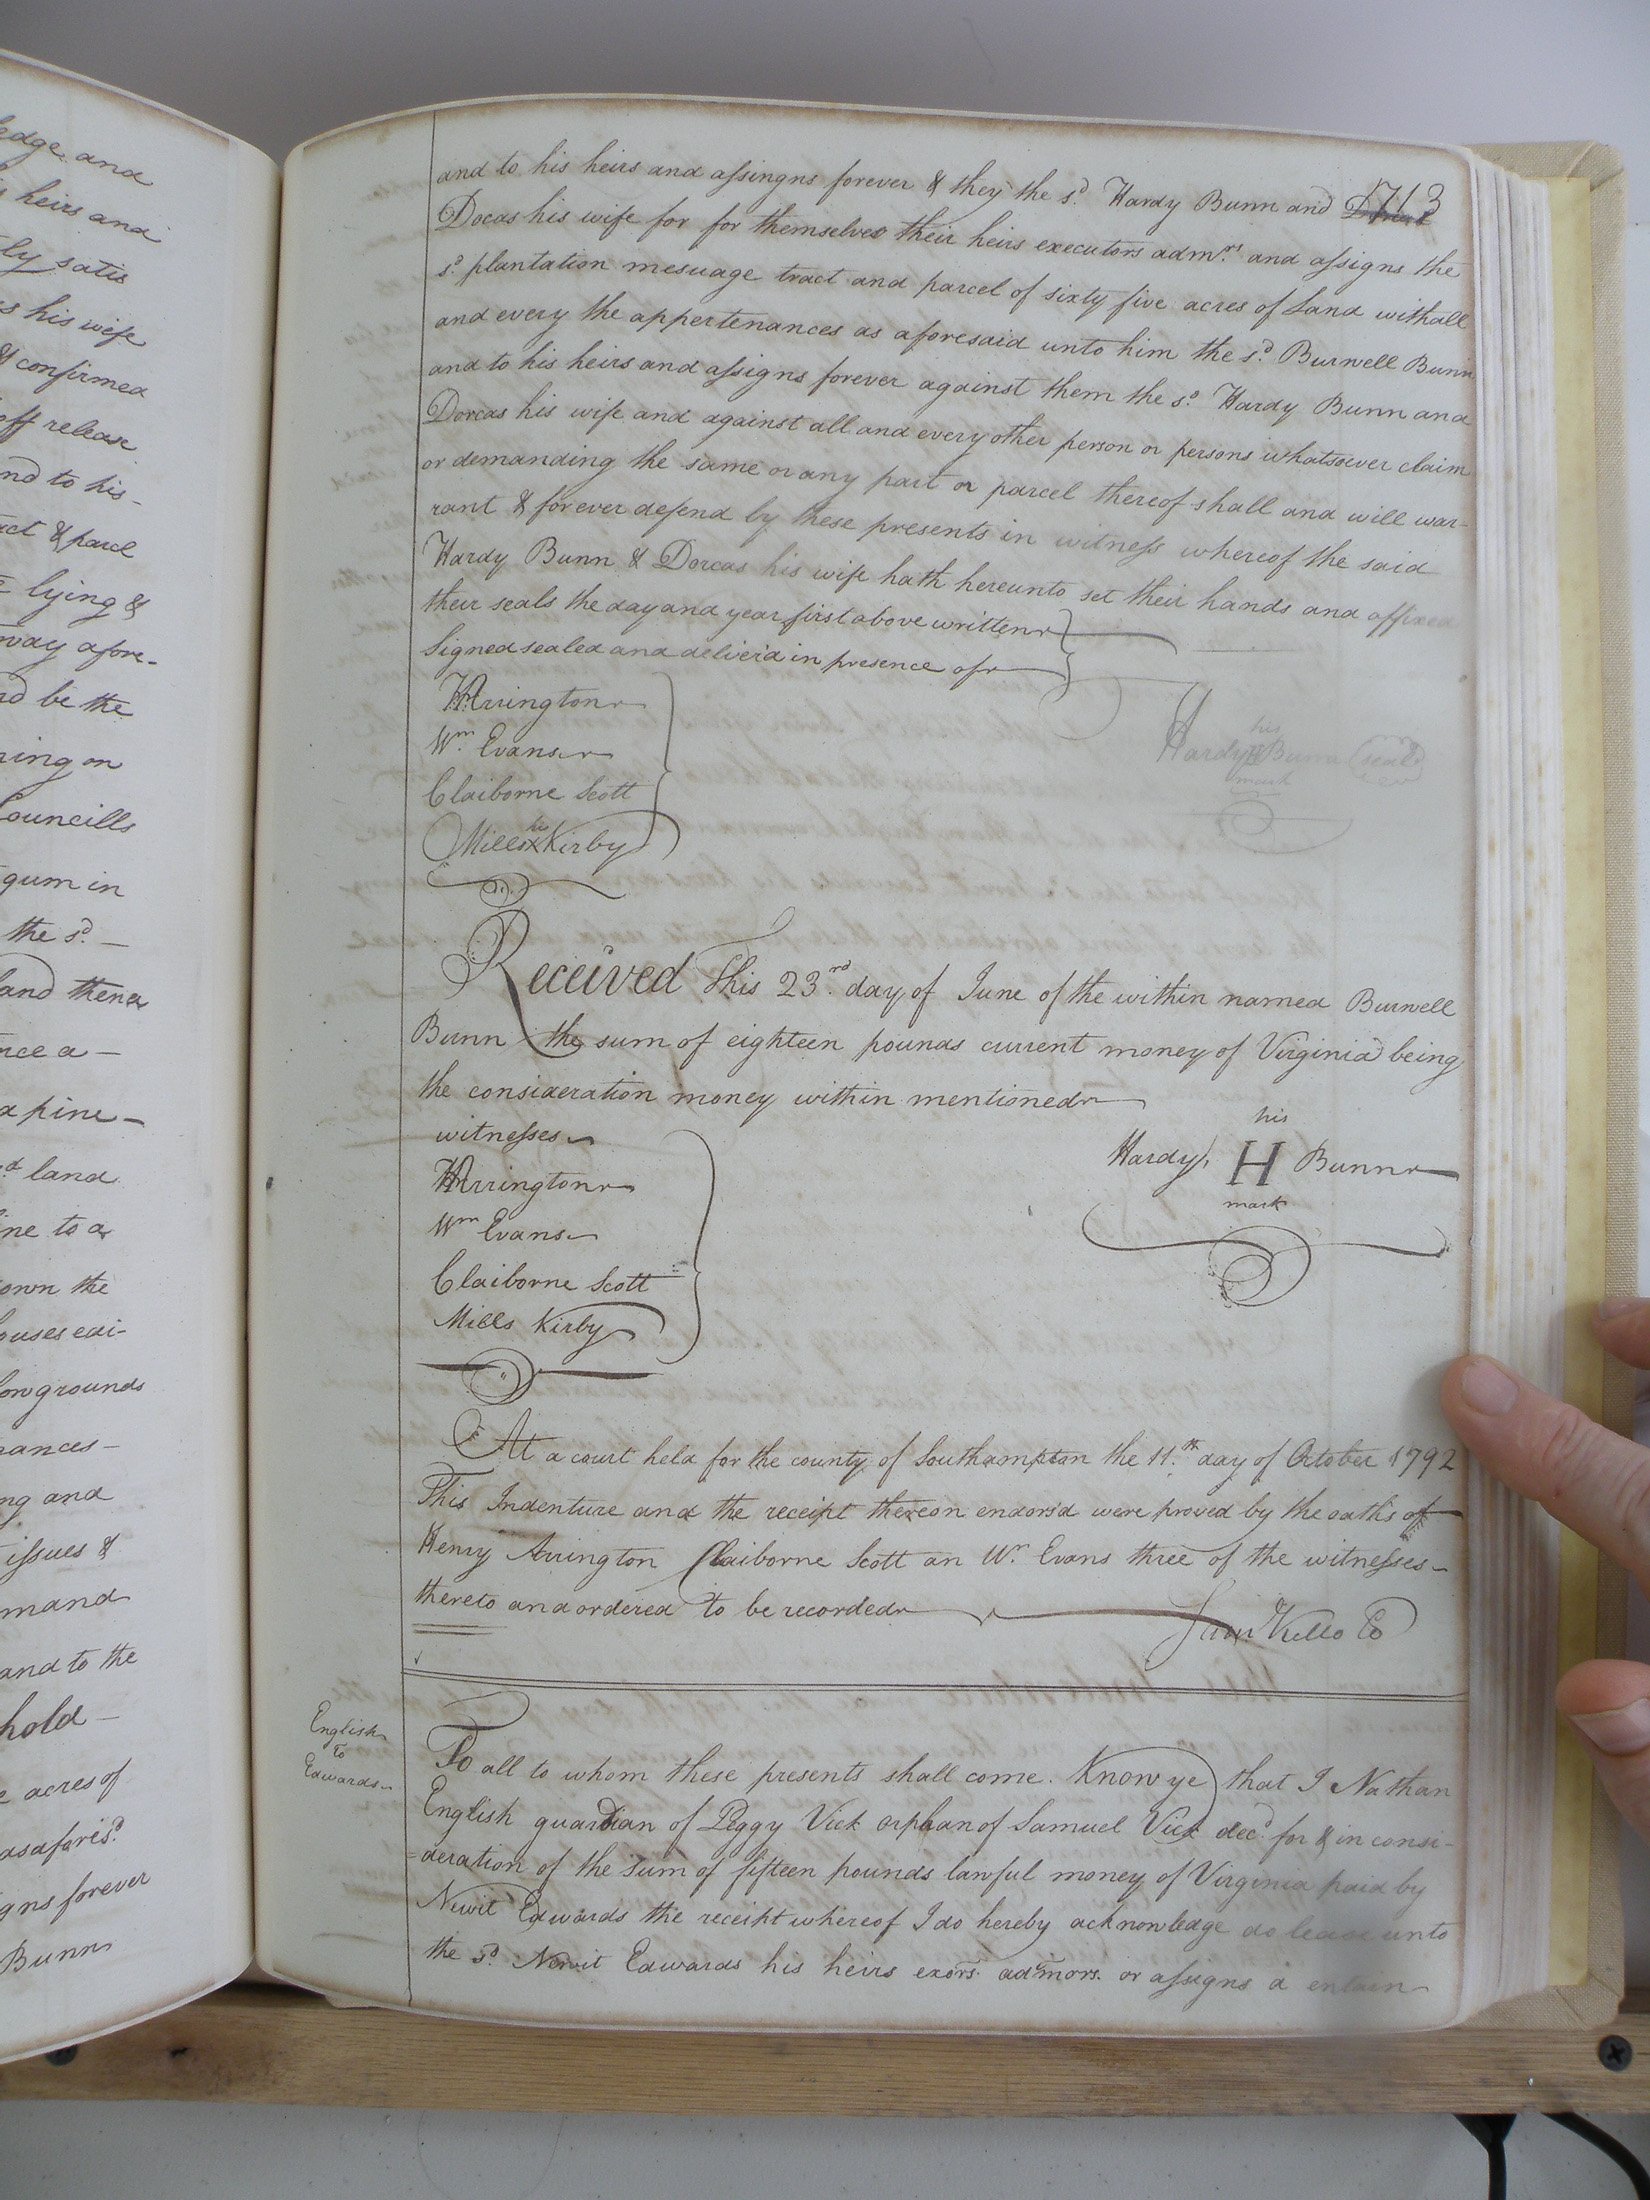 edge and
s heirs and
ly satis
s his wife
& confirmed
off release
nd to his
ct & parcel
lying &
way afore-
nd be the
ning on
Councills
gum in
the sd.
land thence
nce a
a pine
d land
ine to a
own the
ouses edi-
low grounds
nances
ng and
issues &
mand
and to the
hold
acres of
as afores.d
igns forever
Bunn
713
and to his heirs and assingns forever & they the s.d Hardy Bunn and
Docas his wife for for themselves their heirs executors adm.rs and assigns the
s.d plantation mesuage tract and parcel of sixty five acres of Land withall
and every the appertenances as aforesaid unto him the s.d Burwell Bunn
and to his heirs and assigns forever against them the s.d Hardy Bunn and
Dorcas his wife and against all and every other person or persons whatsoever claim
or demanding the same or any part or parcel thereof shall and will war-
rant & forever defend by these presents in witness whereof the said
Hardy Bunn & Dorcas his wife hath hereunto set their hands and affixed
their seals the day and year first above written
Signed sealed and deliver'd in presence of
HArrington
Wm. Evans
Claiborne Scott
Mills Kirby
his
Hardy H Bunn (seal)
mark
Received This 23.rd day of June of the within named Burwell
Bunn the sum of eighteen pounds current money of Virginia being
the consideration money within mentioned
witnesses
HArrington
Wm Evans
Claiborne Scott
Mills Kirby
his
Hardy H Bunn
mark
At a court held for the county of Southampton the 11.th day of October 1792
This Indenture and the receipt thereon endors'd were proved by the oaths of
Henry Arrington Claiborne Scott an Wm. Evans three of the witnesses
thereto and ordered to be recorded
Sam Kello CC
English
To
Edwards
To all to whom these presents shall come. Know ye that I Nathan
English guardian of Peggy Vick orphan of Samuel Vick dec.d for & in consi-
=deration of the sum of fifteen pounds lawful money of Virginia paid by
Newit Edwards the receipt whereof I do hereby acknowledge do lease unto
the s.d Newit Edwards his heirs exors. admors. or assigns a certain